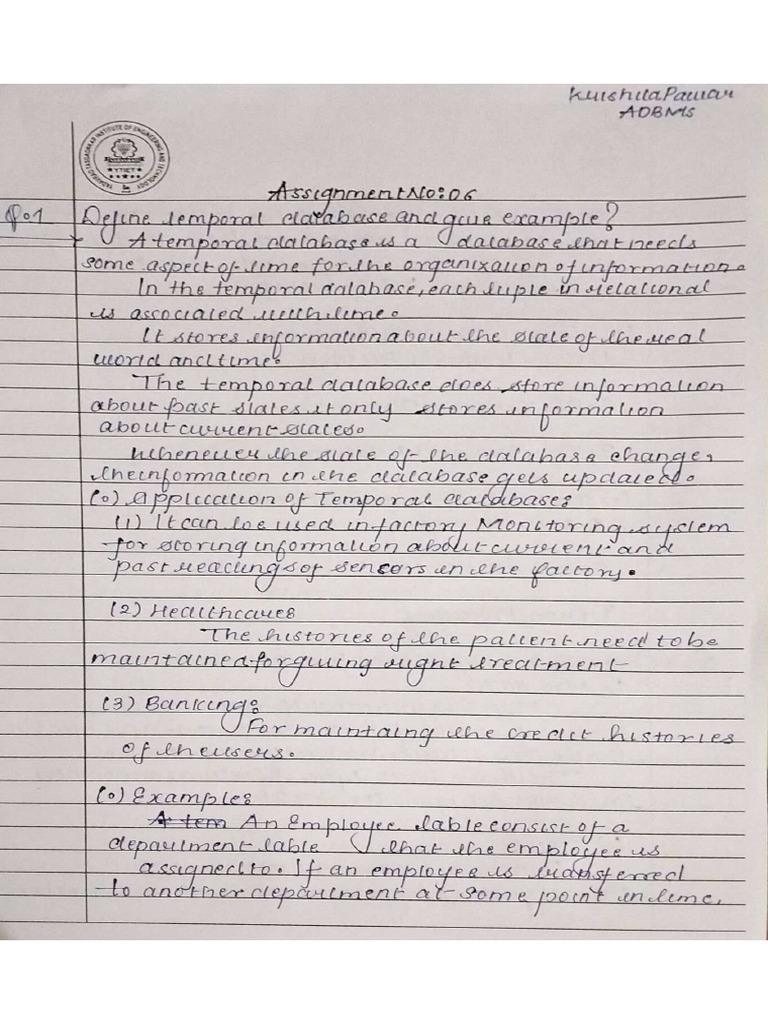 Krushna Pawar
ADBMS
YASHWANTRAO INSTITUTE OF ENGINEERING AND TECHNOLOGY
Assignment No: 06
Q.1 Define temporal database and give example?
A temporal database is a database that needs
some aspect of time for the organization of information.
In the temporal database, each tuple in relational
is associated with time.
It stores information about the state of the real
world and time.
The temporal database does store information
about past states it only stores information
about current states.
Whenever the state of the database change,
the information in the database gets updated.
(o) Application of Temporal databases
(1) It can be used in factory Monitoring system
for storing information about current and
past readings of sensors in the factory.
(2) Healthcares
The histories of the patient need to be
maintained for giving right treatment
(3) Banking:
For maintaing the credit histories
of the users.
(o) Example:
A tem An Employee table consist of a
department table that the employee is
assigned to. If an employee is transferred
to another department at some point in time,